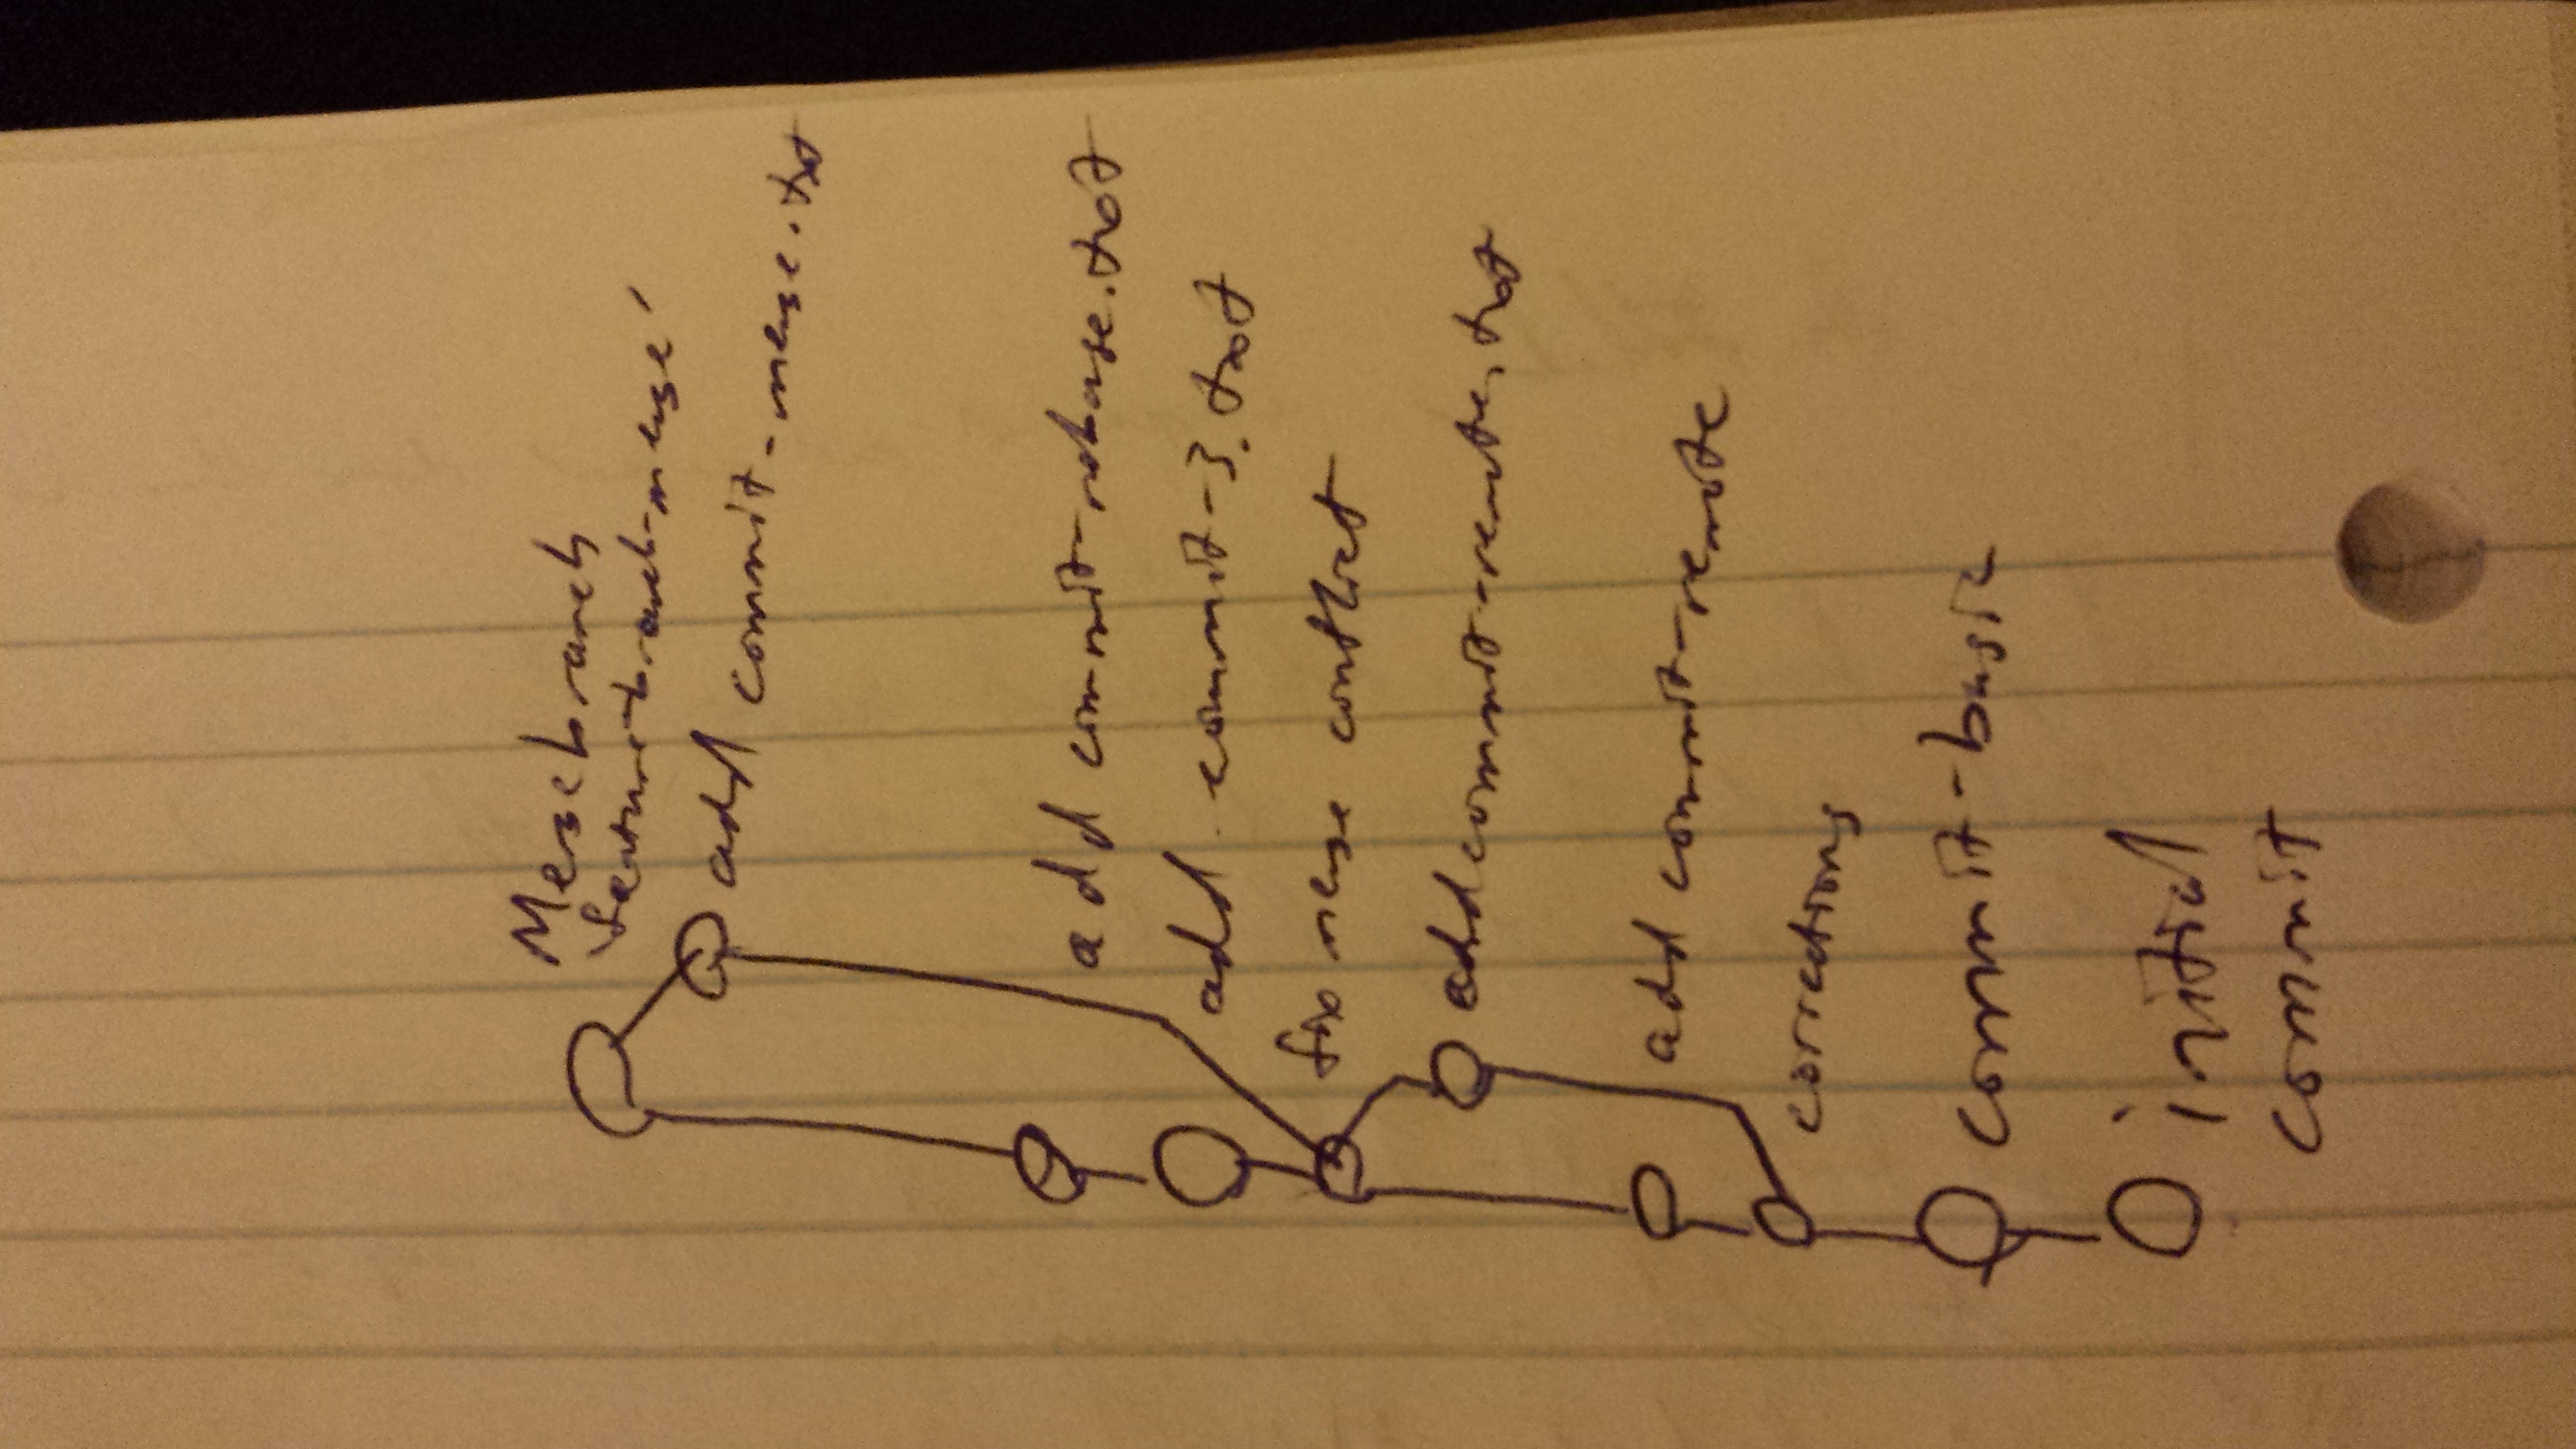 Merge branch
'feature-branch-merge'
add commit-merge.txt
add commit-rebase.txt
add commit-3.txt
fix merge conflict
add commit-remote.txt
add commit-remote
corrections
commit-basic
initial
commit